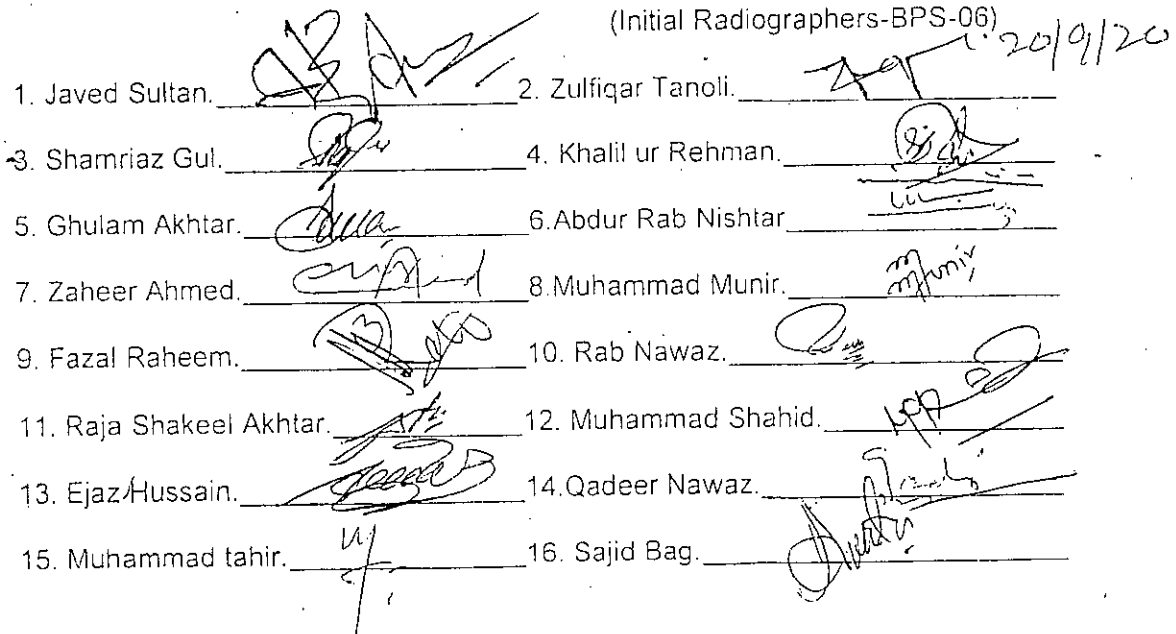 (Initial Radiographers-BPS-06)
20/9/20
1. Javed Sultan. 2. Zulfiqar Tanoli.
3. Shamriaz Gul. 4. Khalil ur Rehman.
5. Ghulam Akhtar. 6.Abdur Rab Nishtar
7. Zaheer Ahmed. 8.Muhammad Munir. Munir
9. Fazal Raheem. 10. Rab Nawaz.
11. Raja Shakeel Akhtar. 12. Muhammad Shahid.
13. Ejaz Hussain. 14.Qadeer Nawaz.
15. Muhammad tahir. 16. Sajid Bag.